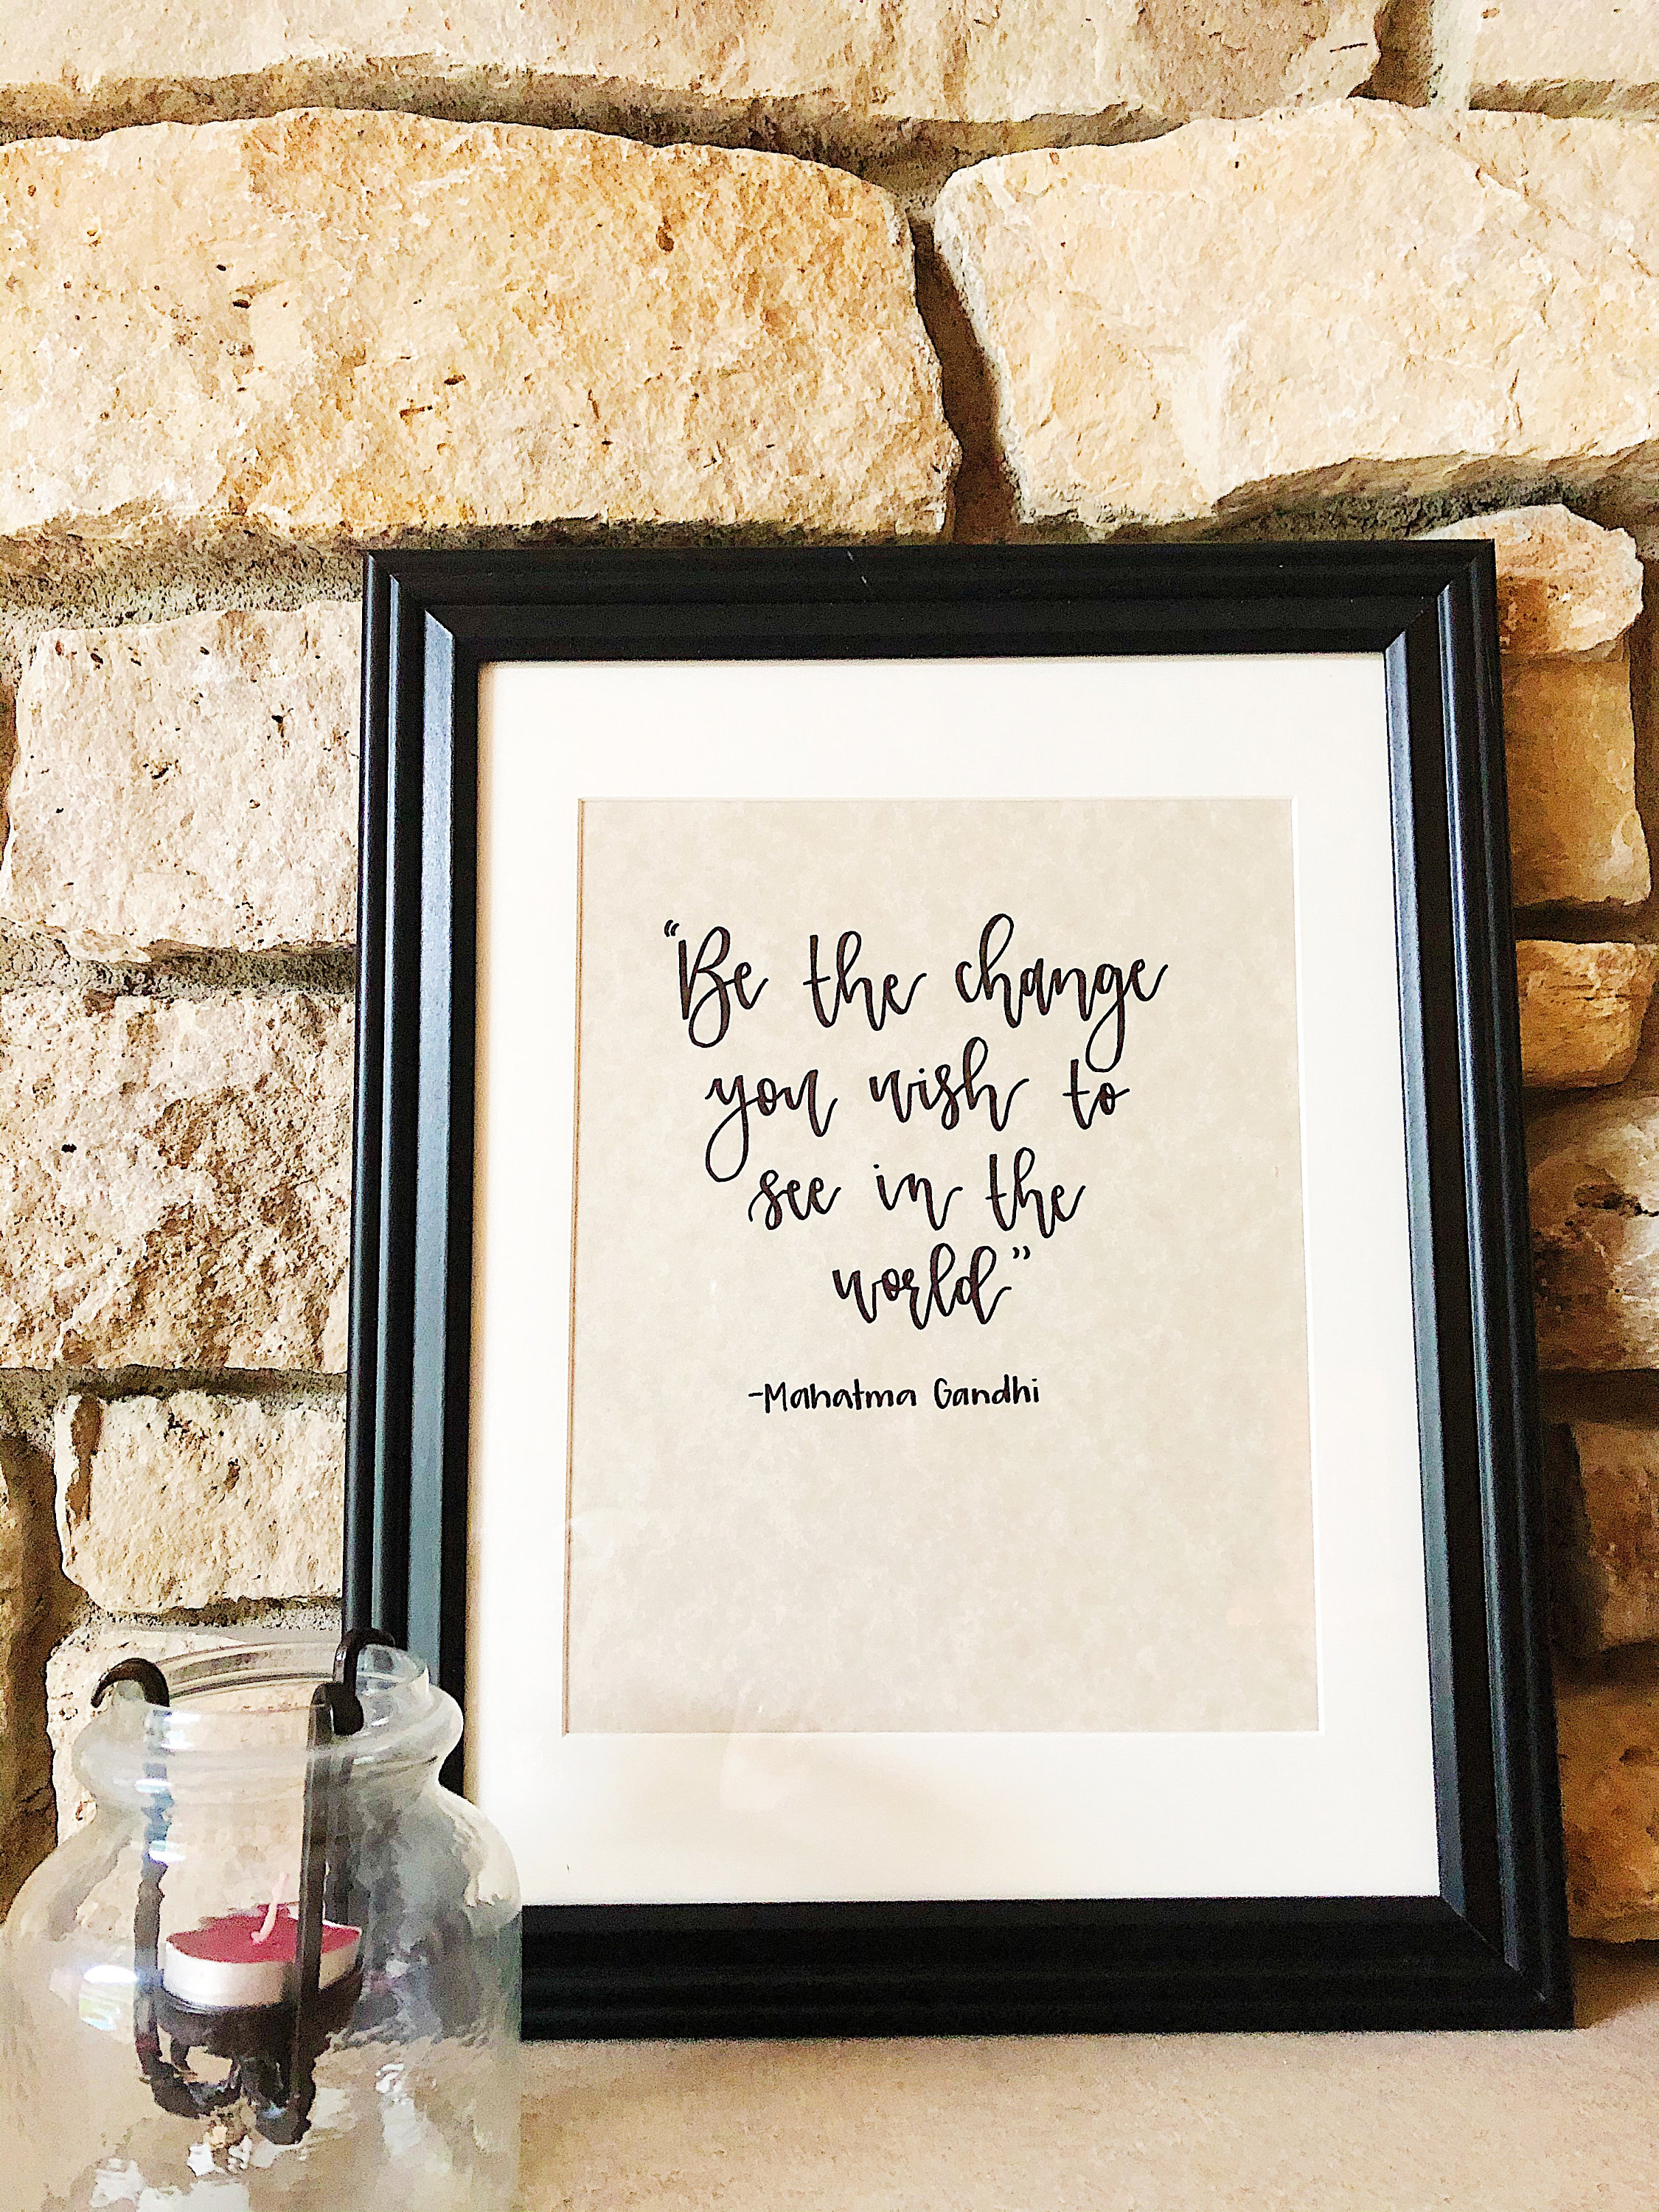 “Be the change
you wish to
see in the
world”
-Mahatma Gandhi